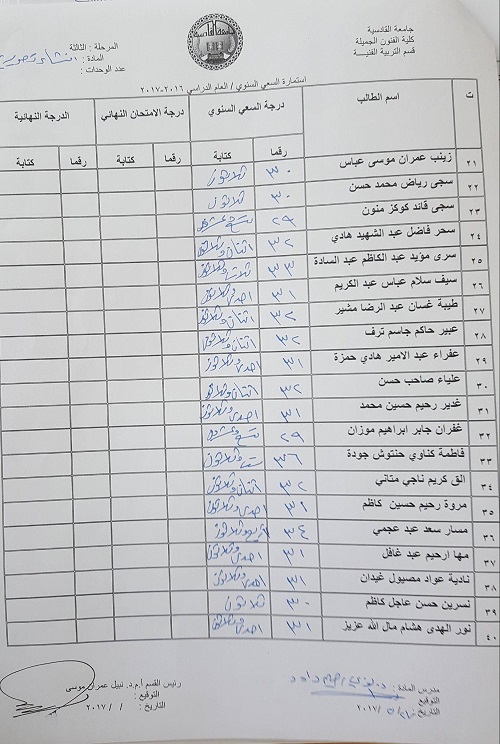 جامعة القادسية
كلية الفنون الجميلة
قسم التربية الفنية
المرحلة : الثالثة
المادة : انشاء تصويري
عدد الوحدات :
استمارة السعي السنوي / العام الدراسي ٢٠١٦-٢٠١٧
ت اسم الطالب درجة السعي السنوي درجة الامتحان النهائي الدرجة النهائية
رقما كتابة رقما كتابة رقما كتابة
٢١ زينب عمران موسى عباس ٣٠ ثلاثون
٢٢ سجى رياض محمد حسن ٣٠ ثلاثون
٢٣ سجى قائد كوكز منون ٢٩ تسع وعشرون
٢٤ سحر فاضل عبد الشهيد هادي ٣٢ اثنان وثلاثون
٢٥ سرى مؤيد عبد الكاظم عبد السادة ٣٣ ثلاث وثلاثون
٢٦ سيف سلام عباس عبد الكريم ٣١ احدى وثلاثون
٢٧ طيبة غسان عبد الرضا مشير ٣٢ اثنان وثلاثون
٢٨ عبير حاكم جاسم ترف ٣٢ اثنان وثلاثون
٢٩ عفراء عبد الامير هادي حمزة ٣١ احدى وثلاثون
٣٠ علياء صاحب حسن ٣٢ اثنان وثلاثون
٣١ غدير رحيم حسين محمد ٣١ احدى وثلاثون
٣٢ غفران جابر ابراهيم موزان ٢٩ تسع وعشرون
٣٣ فاطمة كناوي حنتوش جودة ٣٦ ست وثلاثون
٣٤ الق كريم ناجي متاني ٣٢ اثنان وثلاثون
٣٥ مروة رحيم حسين كاظم ٣١ احدى وثلاثون
٣٦ مسار سعد عبد عجمي ٣٤ اربع وثلاثون
٣٧ مها ارحيم عبد غافل ٣١ احدى وثلاثون
٣٨ نادية عواد مصيول غيدان ٣١ احدى وثلاثون
٣٩ نسرين حسن عاجل كاظم ٣٠ ثلاثون
٤٠ نور الهدى هشام مال الله عزيز ٣١ احدى وثلاثون
مدرس المادة :
التوقيع
التاريخ : ٢٠١٧/٥/
رئيس القسم أ.م.د. نبيل عمران موسى
التوقيع :
التاريخ : / / ٢٠١٧